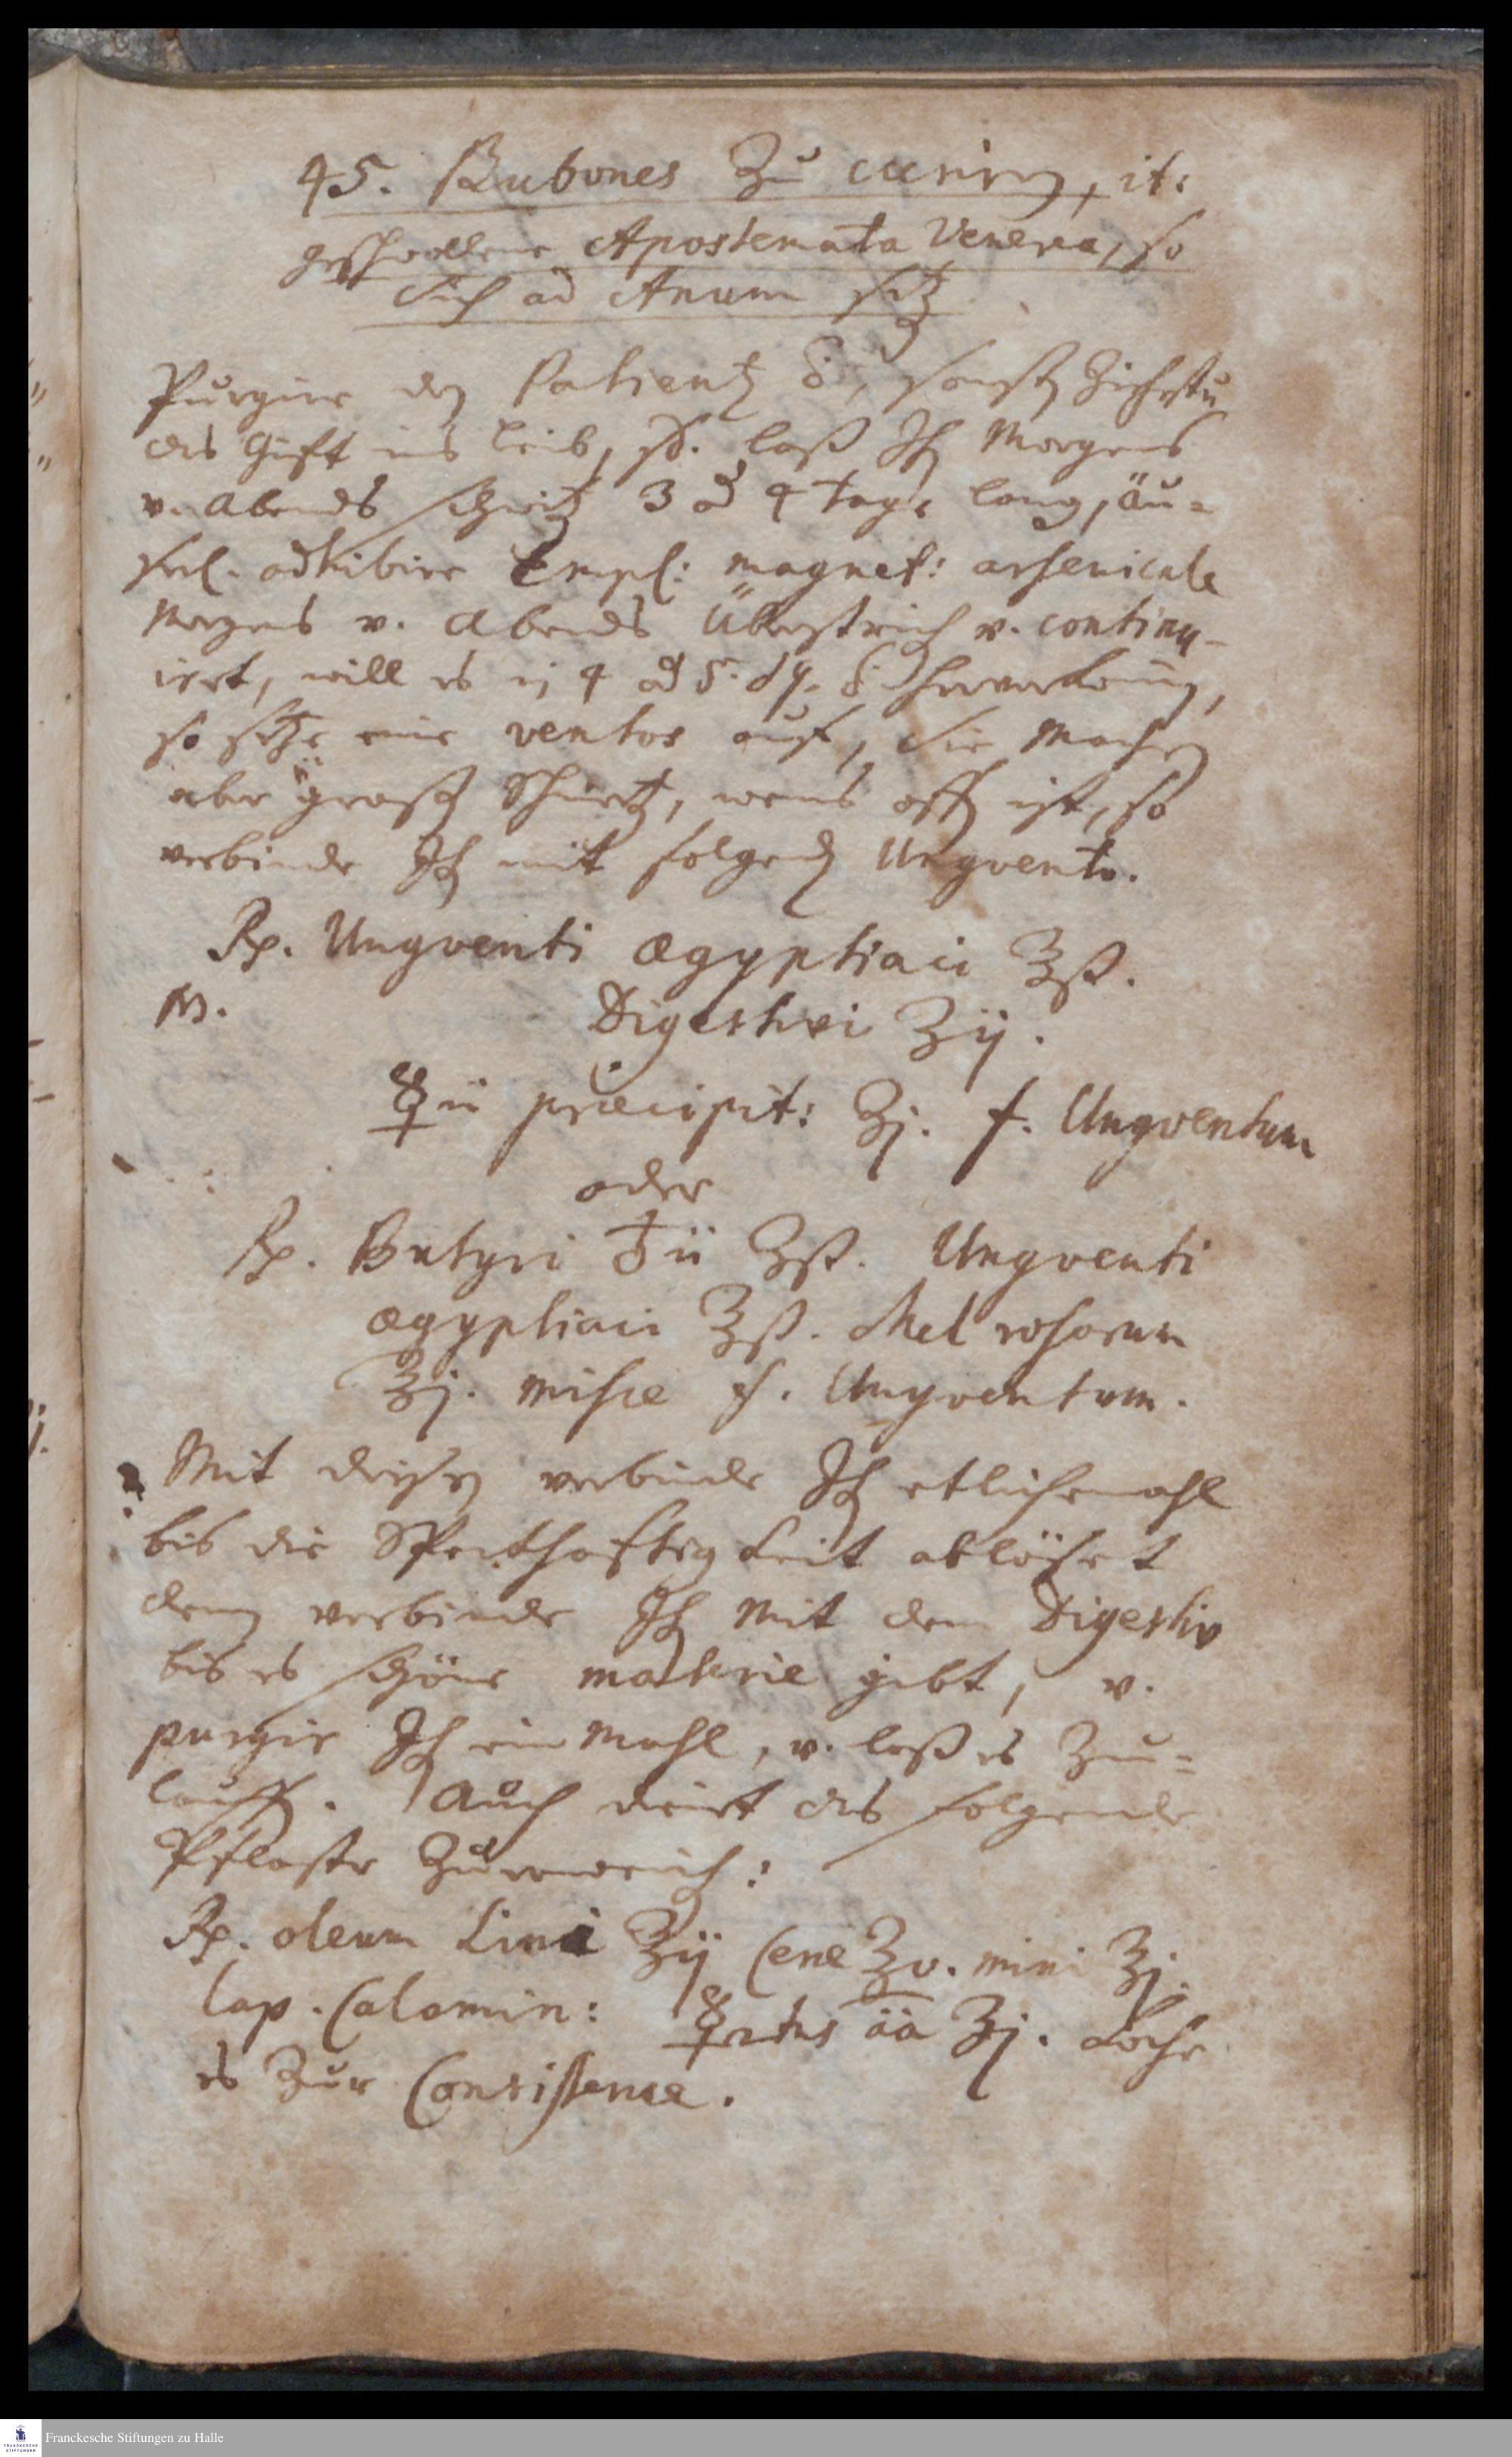 45. Bubones Zu curiren, it:
geschwollene Apostemata Venerea, so
sich ad Anum setz
Purgire den Patientz sonsten Ziehestu
das Gift ins leib, sd. laß Ihn Morgens
v. Abends schwitz 3 od 4 tage lang, äu-
serl. adhibire Empl: magnet: arsenicale
Morgens v. Abends überstrich v. continu-
irt, will es in 4 od 5. d
so setze eine ventos auf, die machen
aber große Schmertz, wens offen ist, so
verbinde Ich mit folgend Ungvento.
Rp. Ungventi ægyptiaci ʒß.
M. Digestivi ʒij.
☿ii præcipit: ʒj. f. Ungventum
oder
Rp. Butyri ♁ii ʒß. Ungventi
ægyptiaci ʒß. Mel rosarum
ʒj. misce f. Ungventum.
Mit diesen verbinde Ich etlichemahl
bis die Speckhaftigkeit ablöset
denn verbinde Ich mit dem Digestiv
bis es schöne materie gibt, v.
purgir Ich ein Mahl, v. laß es Zu-
lauffen. Auch dient das folgende
Pflaster
Rp. oleum Lini ʒij Ceræ ʒv. mini ʒj.
Lap. Calamin: ãã ʒj. Koche
es Zur Consistence.
Franckesche Stiftungen zu Halle